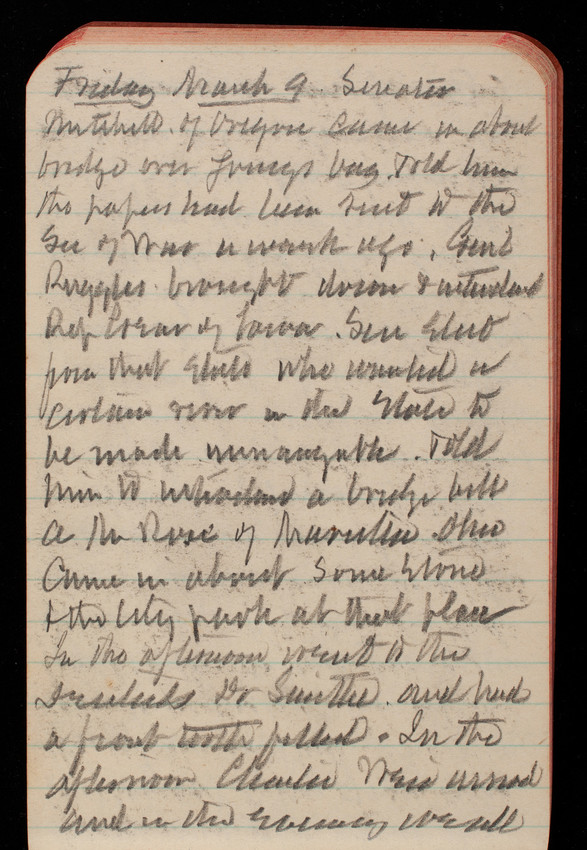 Friday March 9. Senator
Mitchell of Oregon came in about
bridge over Youngs bay. Told him
the papers had been sent to the
Sec of War a week ago. Genl
Ruggles brought down &
Rep of Iowa. Sen Elect
from that State who wanted a
certain river in the State to
be made unnavigable. Told
him to introduce a bridge bill
A Mr Rose of Marietta Ohio
Came in about some Stone
the City park at that place
In the afternoon went to the
Dr Smith and had
a front tooth pulled. In the
afternoon Charlie arrived
and in the evening we all